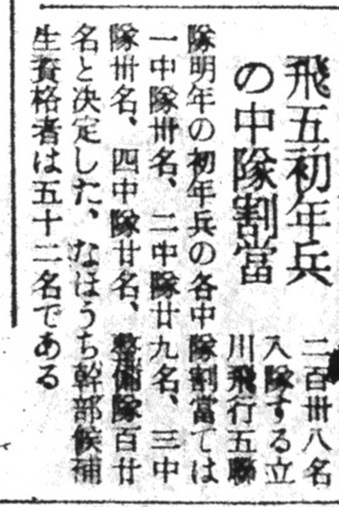 飛五初年兵
の中隊割當
二百卅八名
入隊する立
川飛行五聯
隊明年の初年兵の各中隊割當ては
一中隊卅名、二中隊廿九名、三中
隊卅名、四中隊廿名、整備隊百廿
名と決定した、なほうち幹部候補
生資格者は五十二名である